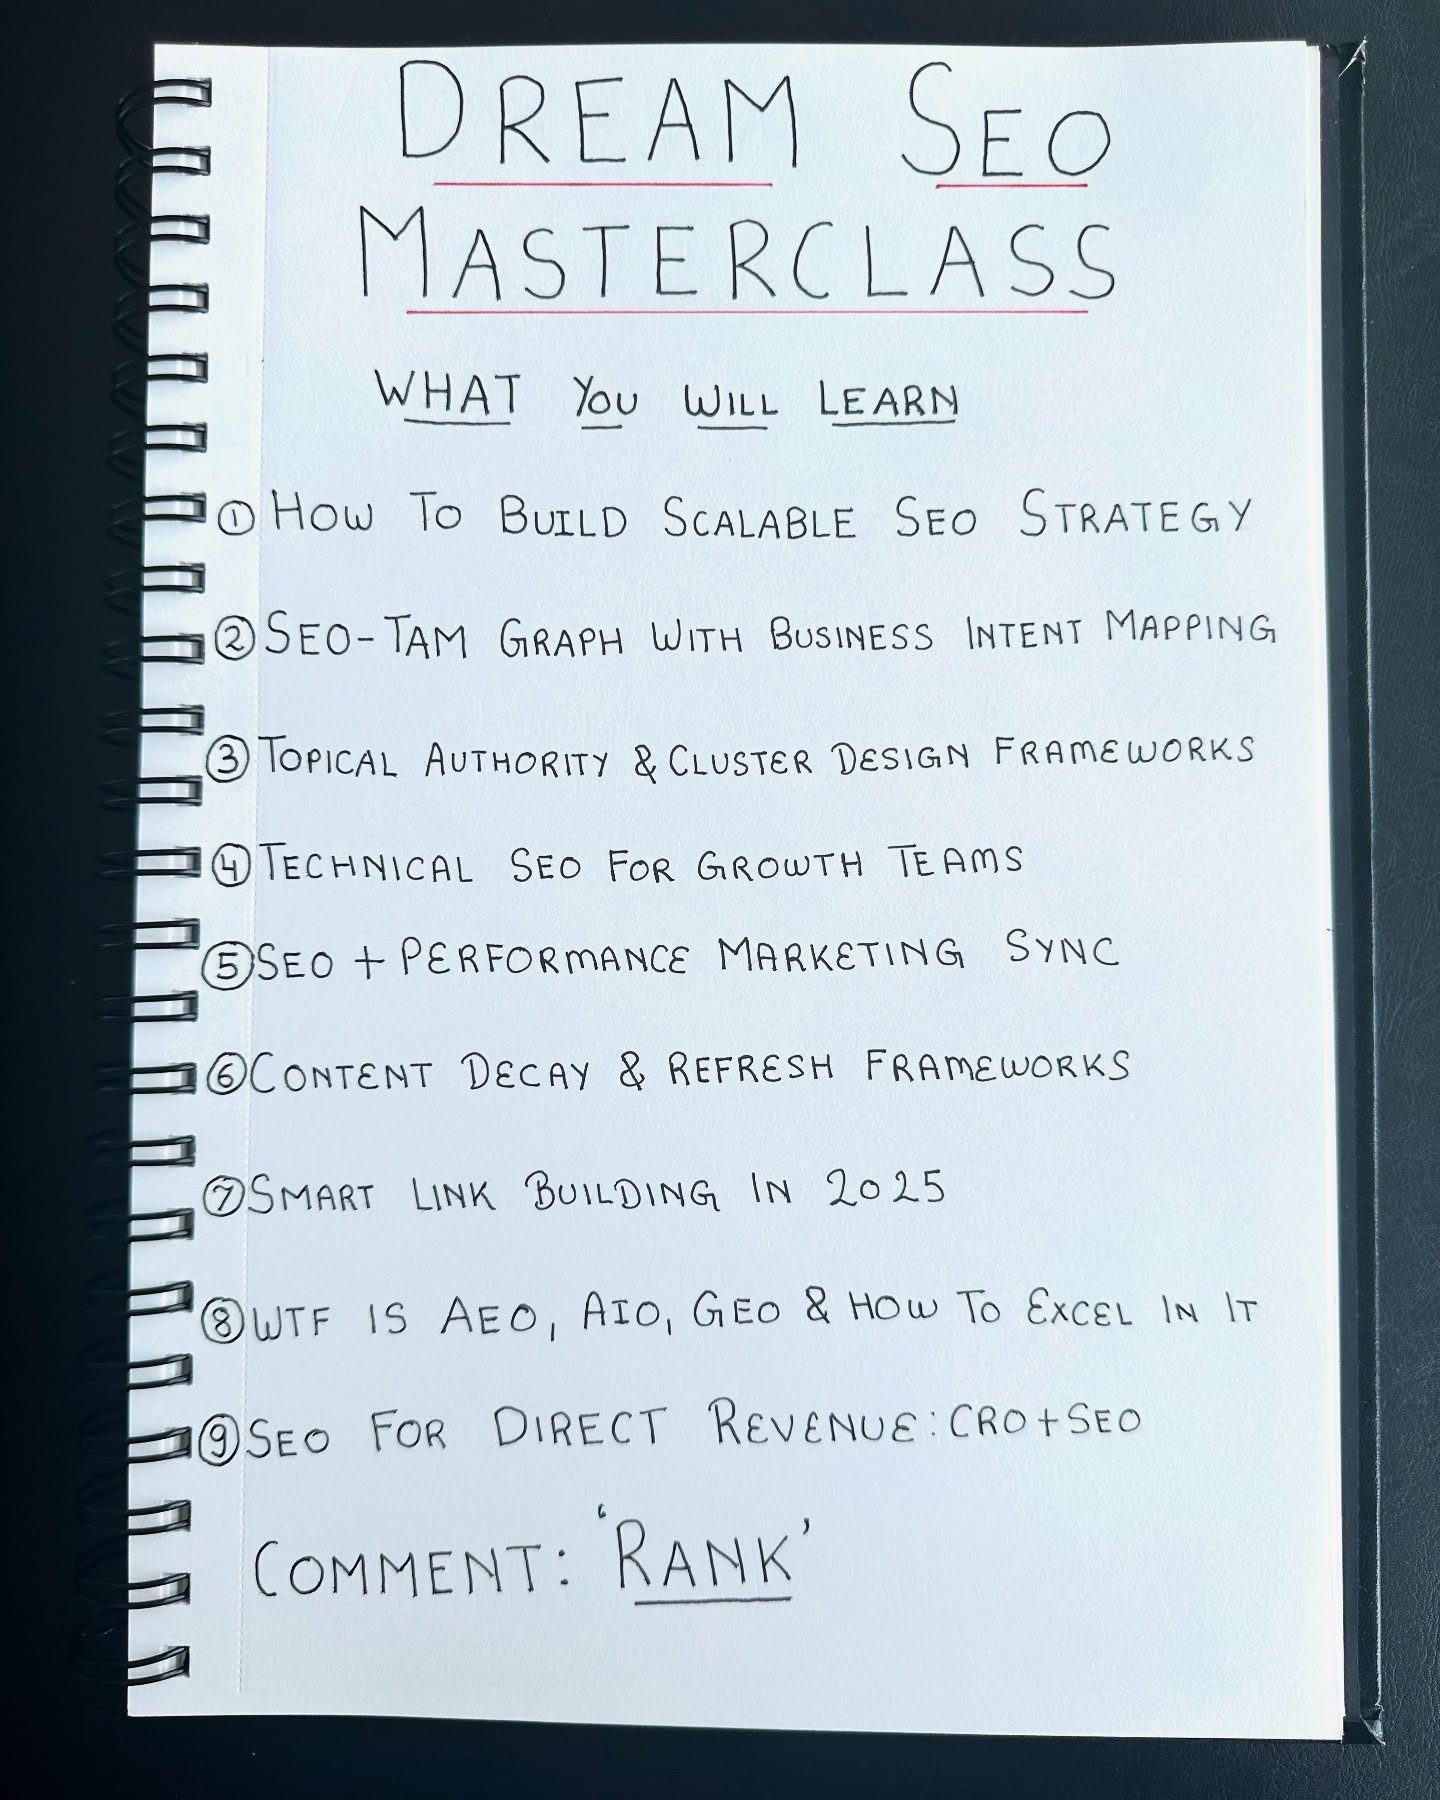 DREAM SEO
MASTERCLASS
WHAT YOU WILL LEARN
① HOW TO BUILD SCALABLE SEO STRATEGY
② SEO-TAM GRAPH WITH BUSINESS INTENT MAPPING
③ TOPICAL AUTHORITY & CLUSTER DESIGN FRAMEWORKS
④ TECHNICAL SEO FOR GROWTH TEAMS
⑤ SEO + PERFORMANCE MARKETING SYNC
⑥ CONTENT DECAY & REFRESH FRAMEWORKS
⑦ SMART LINK BUILDING IN 2025
⑧ WTF IS AEO, AIO, GEO & HOW TO EXCEL IN IT
⑨ SEO FOR DIRECT REVENUE: CRO+SEO
COMMENT: 'RANK'